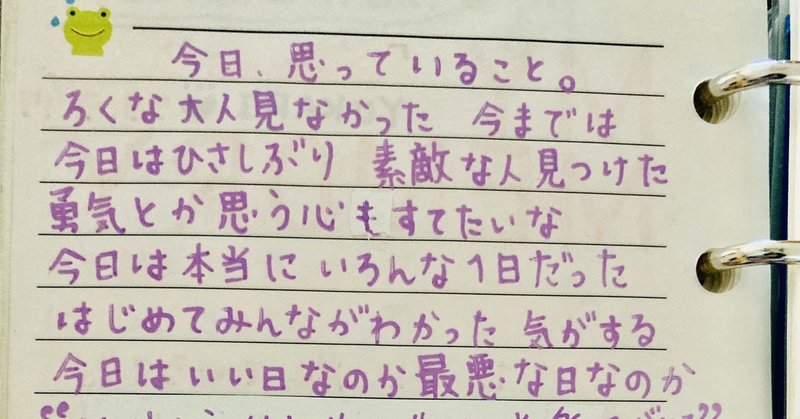 今日、思っていること。
ろくな大人見なかった 今までは
今日はひさしぶり 素敵な人見つけた
勇気とか思う心もすてたいな
今日は本当にいろんな1日だった
はじめてみんながわかった気がする
今日はいい日なのか最悪な日なのか